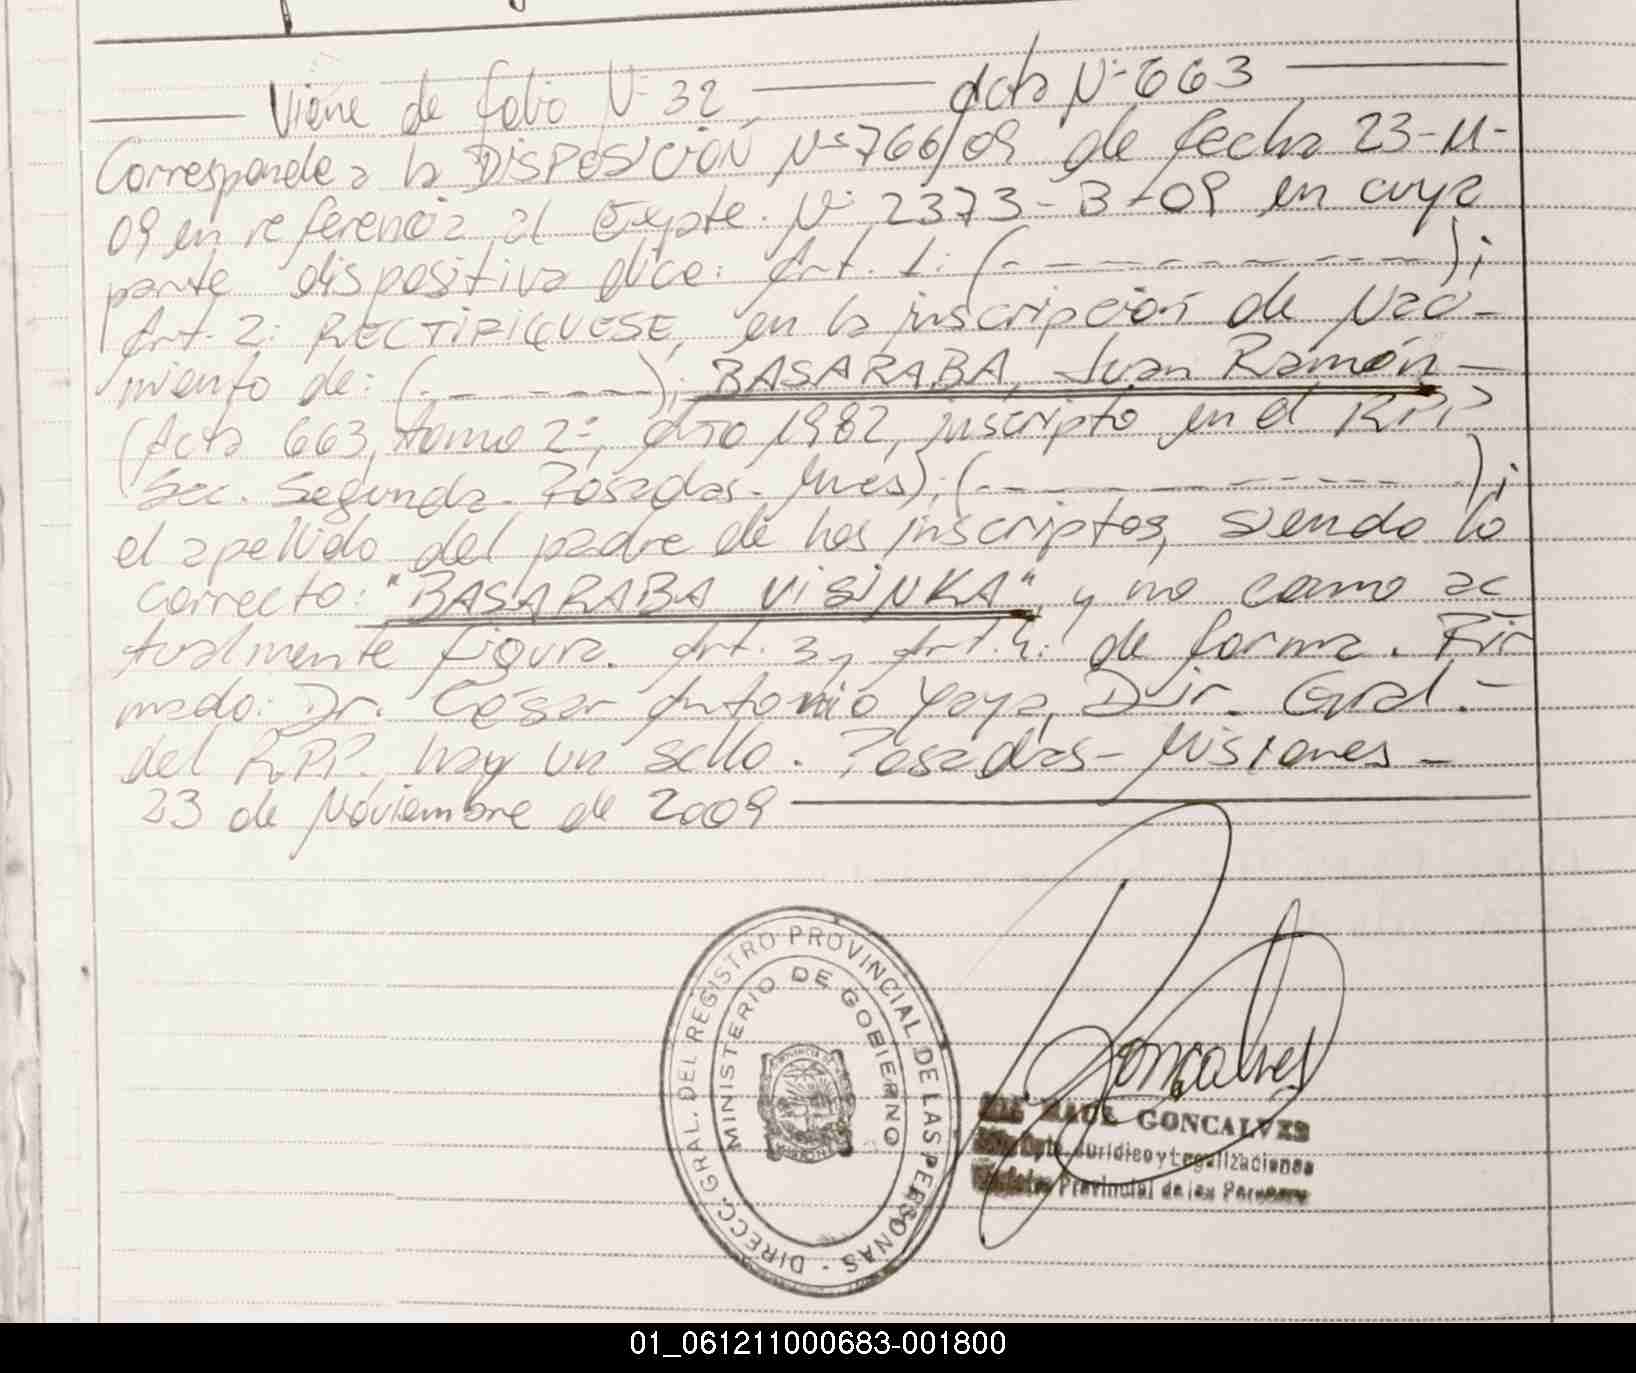 Viene de folio Nº 32, Acta Nº 663
Corresponde a la DISPOSICIÓN Nº 766/09 de fecha 23-11-
09 en referencia al Expte. Nº 2373-B-09 en cuya
parte dispositiva dice: Art. 1: (- - - - - - - - - - -);
Art. 2: RECTIFIQUESE, en la inscripción de Naci-
miento de: (- - - - - -); BASARABA, Juan Ramón -
(Acta 663, tomo 2º, año 1982, inscripto en el R.P.P.
Sec. Segunda. Posadas. Mnes); (- - - - - - - - - - -);
el apellido del padre de los inscriptos, siendo lo
correcto: "BASARABA VISINKA" y no como ac
tualmente figura. Art. 3 y Art. 4: de forma. Fir
mado: Dr. César Antonio Yaya, Dir. Gral. -
del R.P.P. hay un sello. Posadas - Misiones -
23 de Noviembre de 2009
DIRECC. GRAL. DEL REGISTRO PROVINCIAL DE LAS PERSONAS -
MINISTERIO DE GOBIERNO
PROVINCIA DE
MISIONES
Goncalves
RAUL GONCALVES
Dpto. Jurídico y Legalizaciones
Registro Provincial de las Personas
01_061211000683-001800